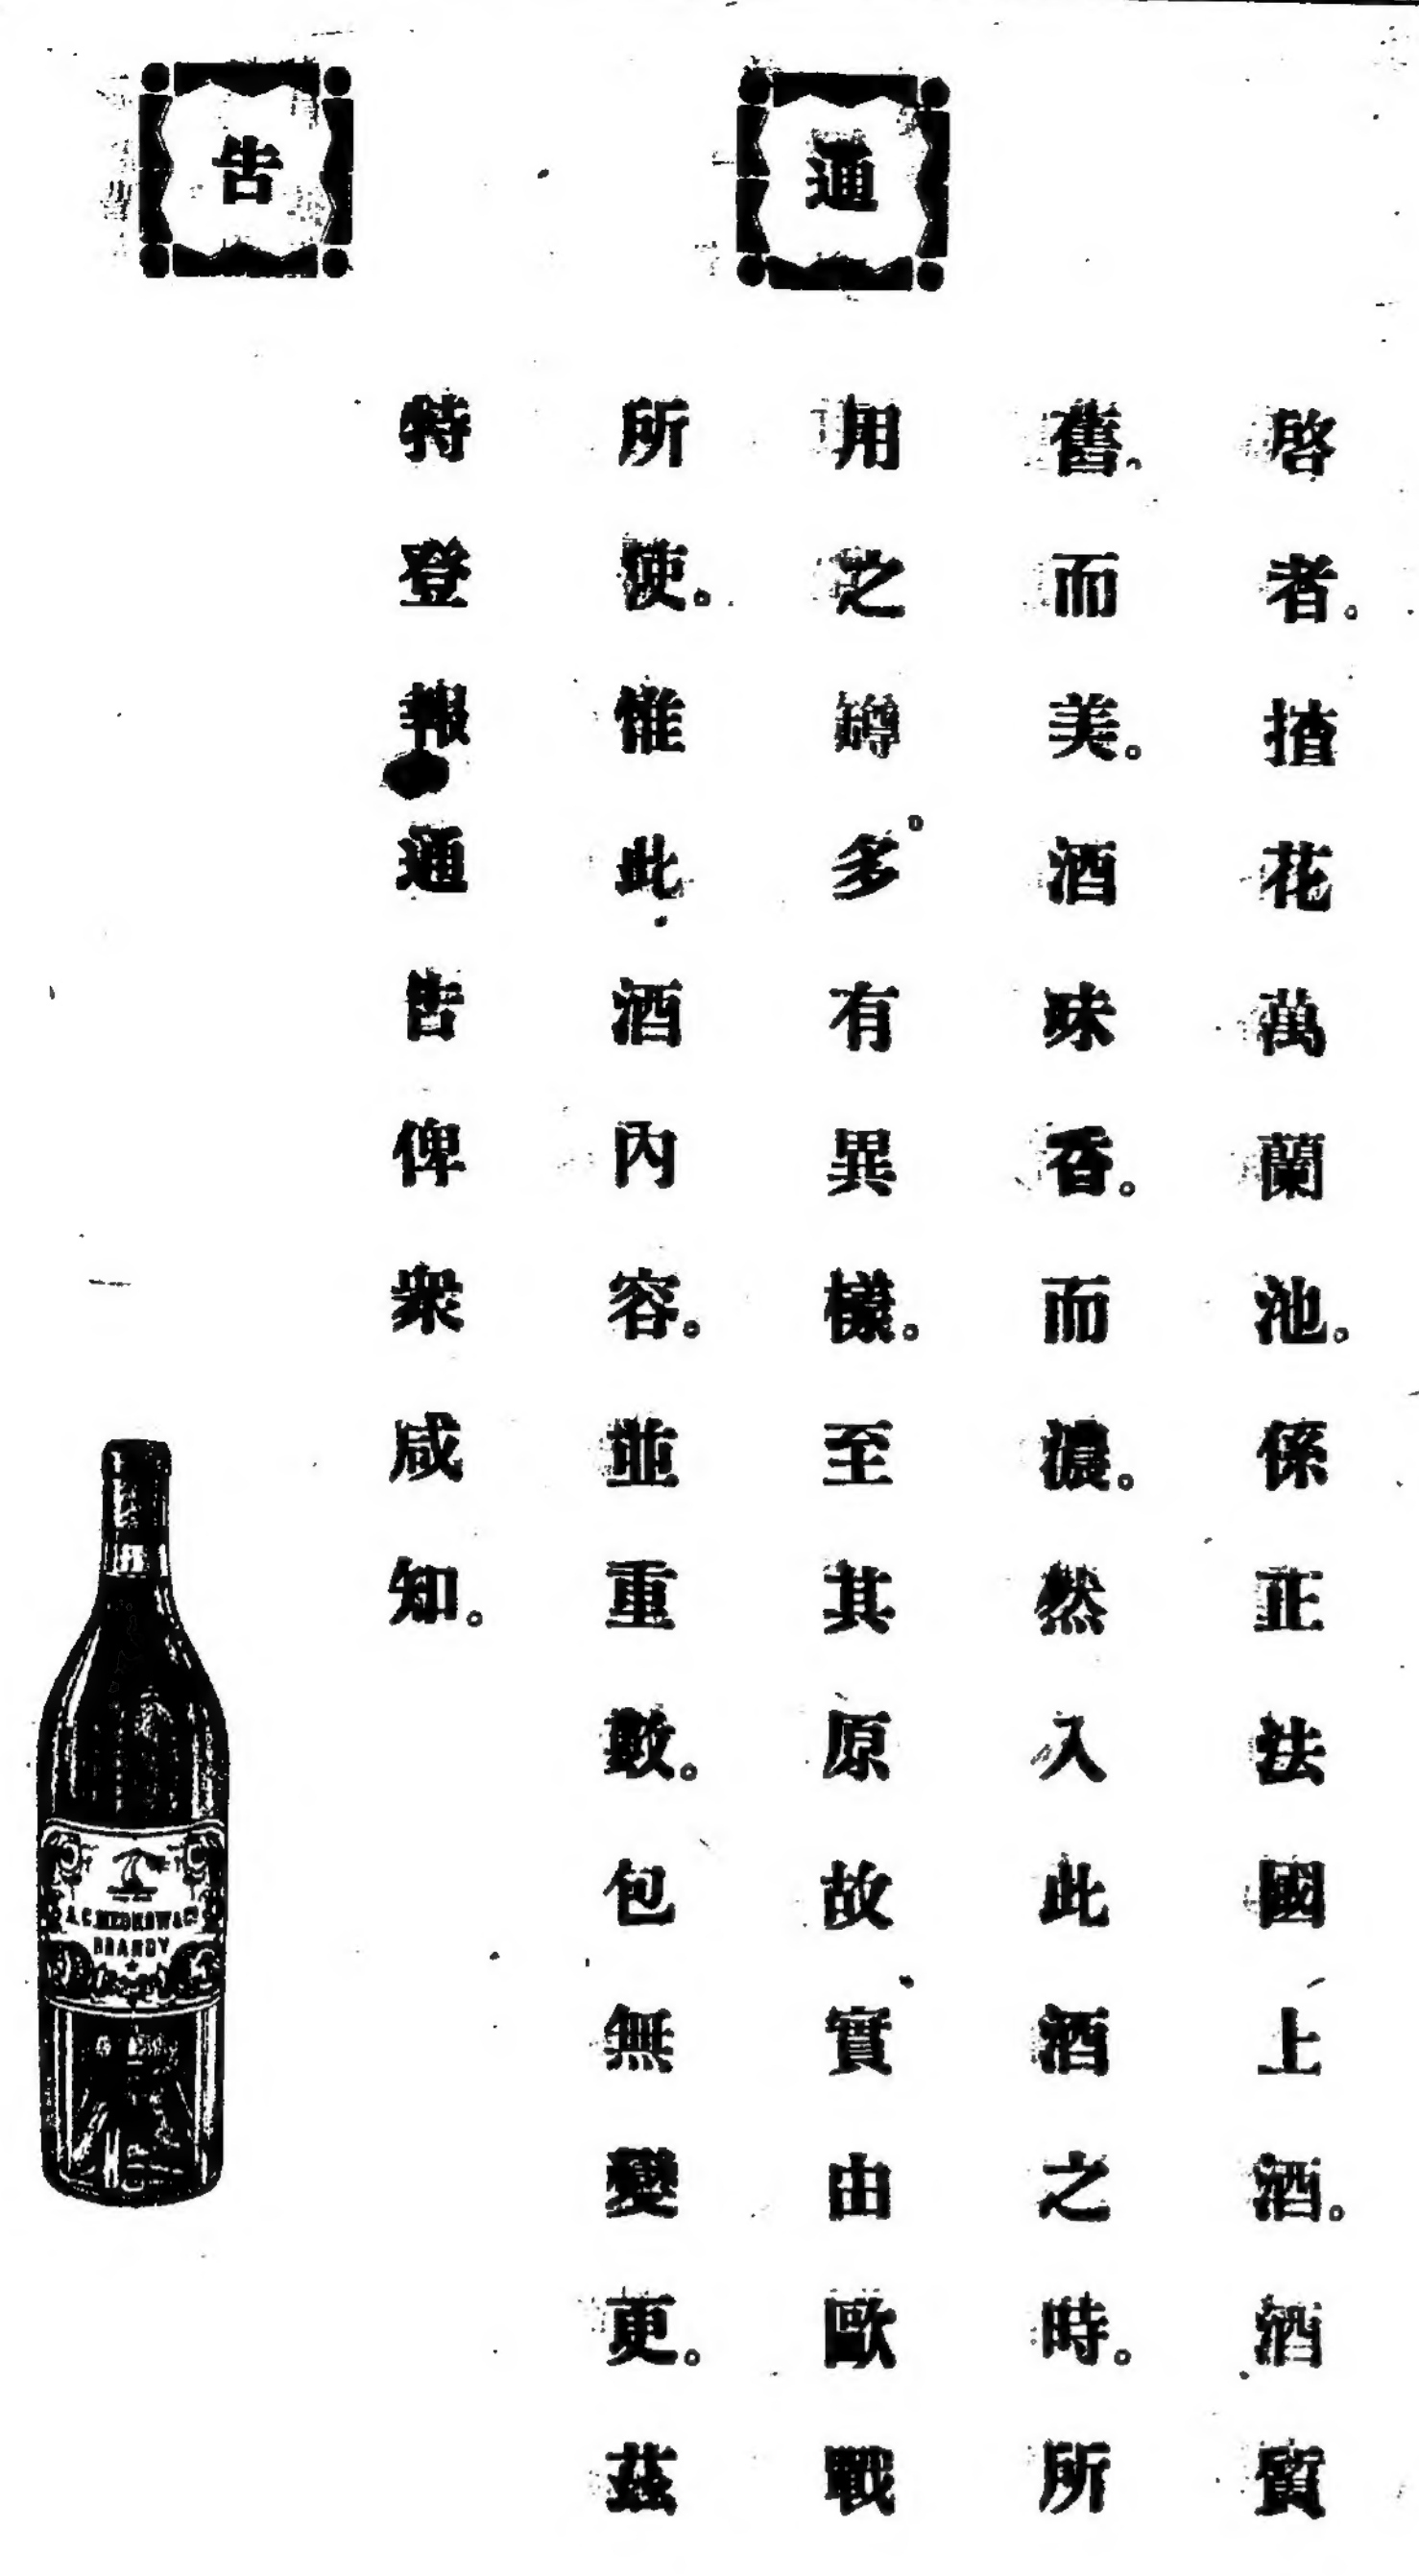 通告
啓者。揸花萬蘭池。係正法國上酒。酒質
舊。而美。酒味香。而濃。然入此酒之時。所
用之罇。多有異樣。至其原故實由歐戰
所使。惟此酒內容。並重數。包無變更。茲
特登報通告俾衆咸知。
A.C. MEUKOW & Co
BRANDY